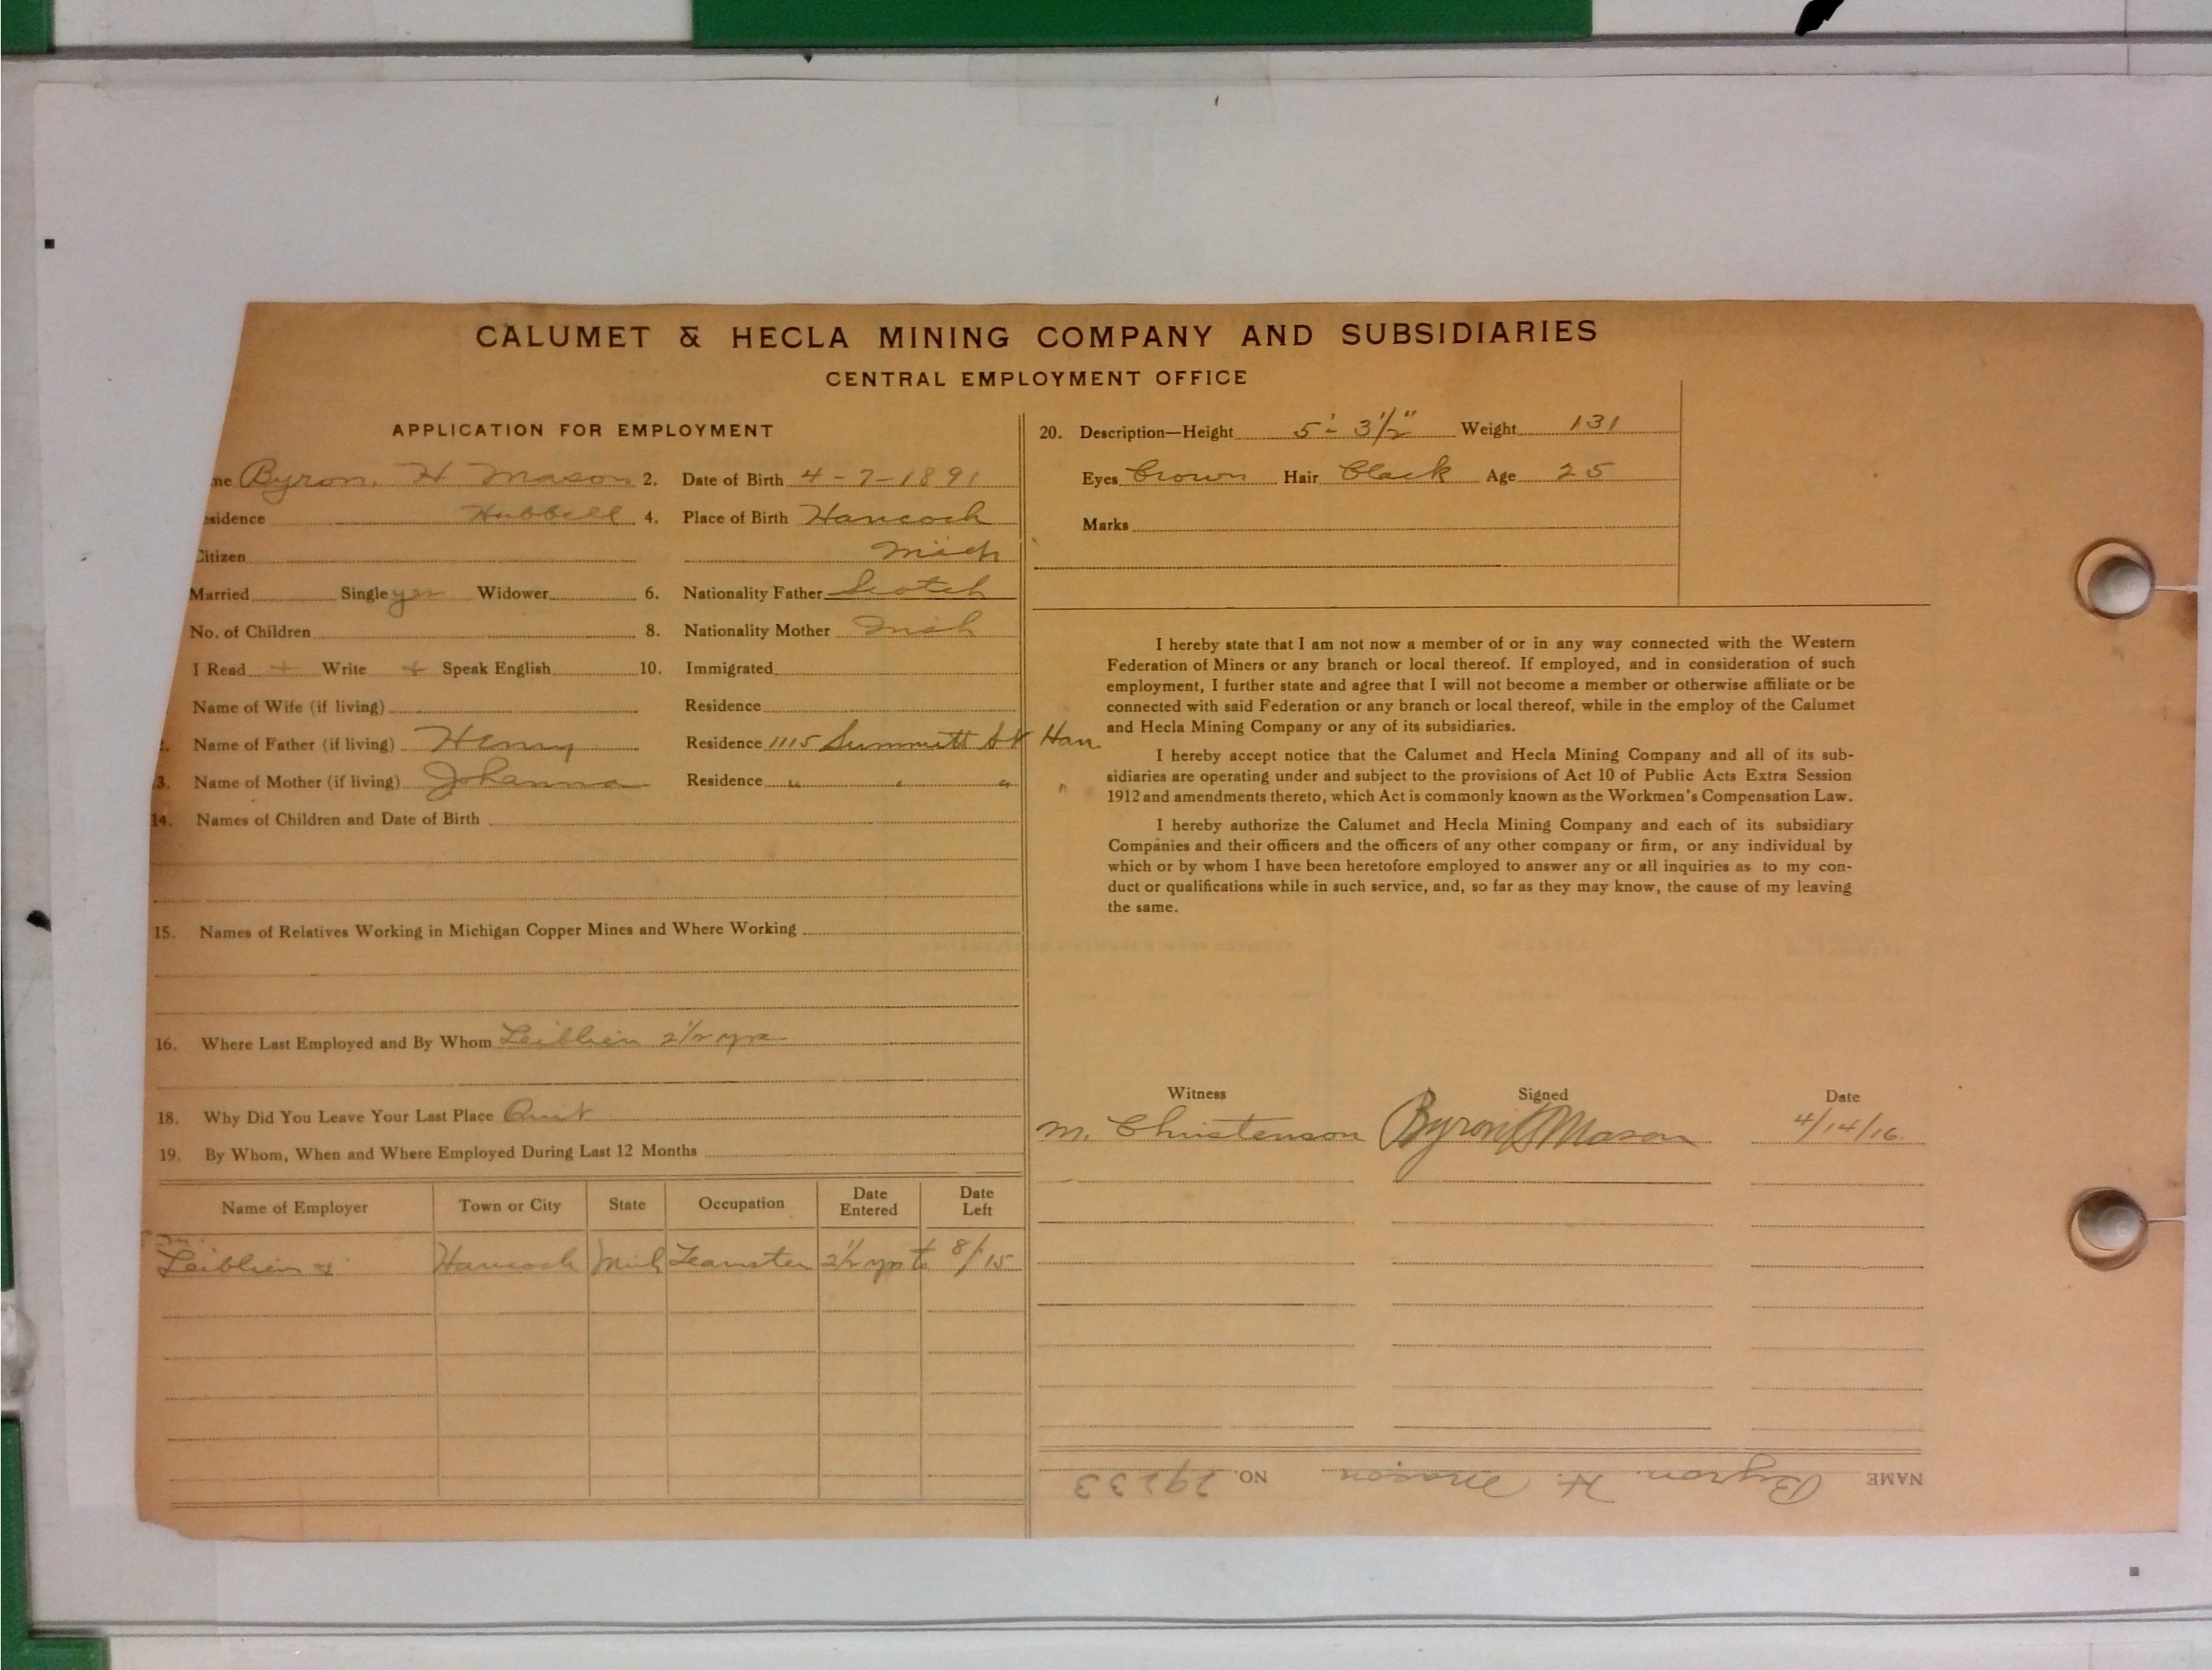 CALUMET & HECLA MINING COMPANY AND SUBSIDIARIES
CENTRAL EMPLOYMENT OFFICE
APPLICATION FOR EMPLOYMENT
me Byron. H Mason 2. Date of Birth 4-7-1891
esidence Hubbell 4. Place of Birth Hancock
Citizen Mich
Married Single yes Widower 6. Nationality Father Scotch
No. of Children 8. Nationality Mother Irish
I Read + Write + Speak English 10. Immigrated
Name of Wife (if living) Residence
Name of Father (if living) Henry Residence 1115 Summitt St Han.
3. Name of Mother (if living) Johanna Residence " " " "
14. Names of Children and Date of Birth
15. Names of Relatives Working in Michigan Copper Mines and Where Working
16. Where Last Employed and By Whom Leiblien 2½ yrs
18. Why Did You Leave Your Last Place Quit
19. By Whom, When and Where Employed During Last 12 Months
Name of Employer Town or City State Occupation Date Entered Date Left
Leiblien & Hancock Mich Teamster 2½ yrs to 8/15
20. Description—Height 5'- 3½" Weight 131
Eyes Brown Hair Black Age 25
Marks
I hereby state that I am not now a member of or in any way connected with the Western
Federation of Miners or any branch or local thereof. If employed, and in consideration of such
employment, I further state and agree that I will not become a member or otherwise affiliate or be
connected with said Federation or any branch or local thereof, while in the employ of the Calumet
and Hecla Mining Company or any of its subsidiaries.
I hereby accept notice that the Calumet and Hecla Mining Company and all of its sub-
sidiaries are operating under and subject to the provisions of Act 10 of Public Acts Extra Session
1912 and amendments thereto, which Act is commonly known as the Workmen's Compensation Law.
I hereby authorize the Calumet and Hecla Mining Company and each of its subsidiary
Companies and their officers and the officers of any other company or firm, or any individual by
which or by whom I have been heretofore employed to answer any or all inquiries as to my con-
duct or qualifications while in such service, and, so far as they may know, the cause of my leaving
the same.
Witness Signed Date
M. Christenson Byron H Mason 4/14/16.
NAME Byron. H. Mason NO. 29233